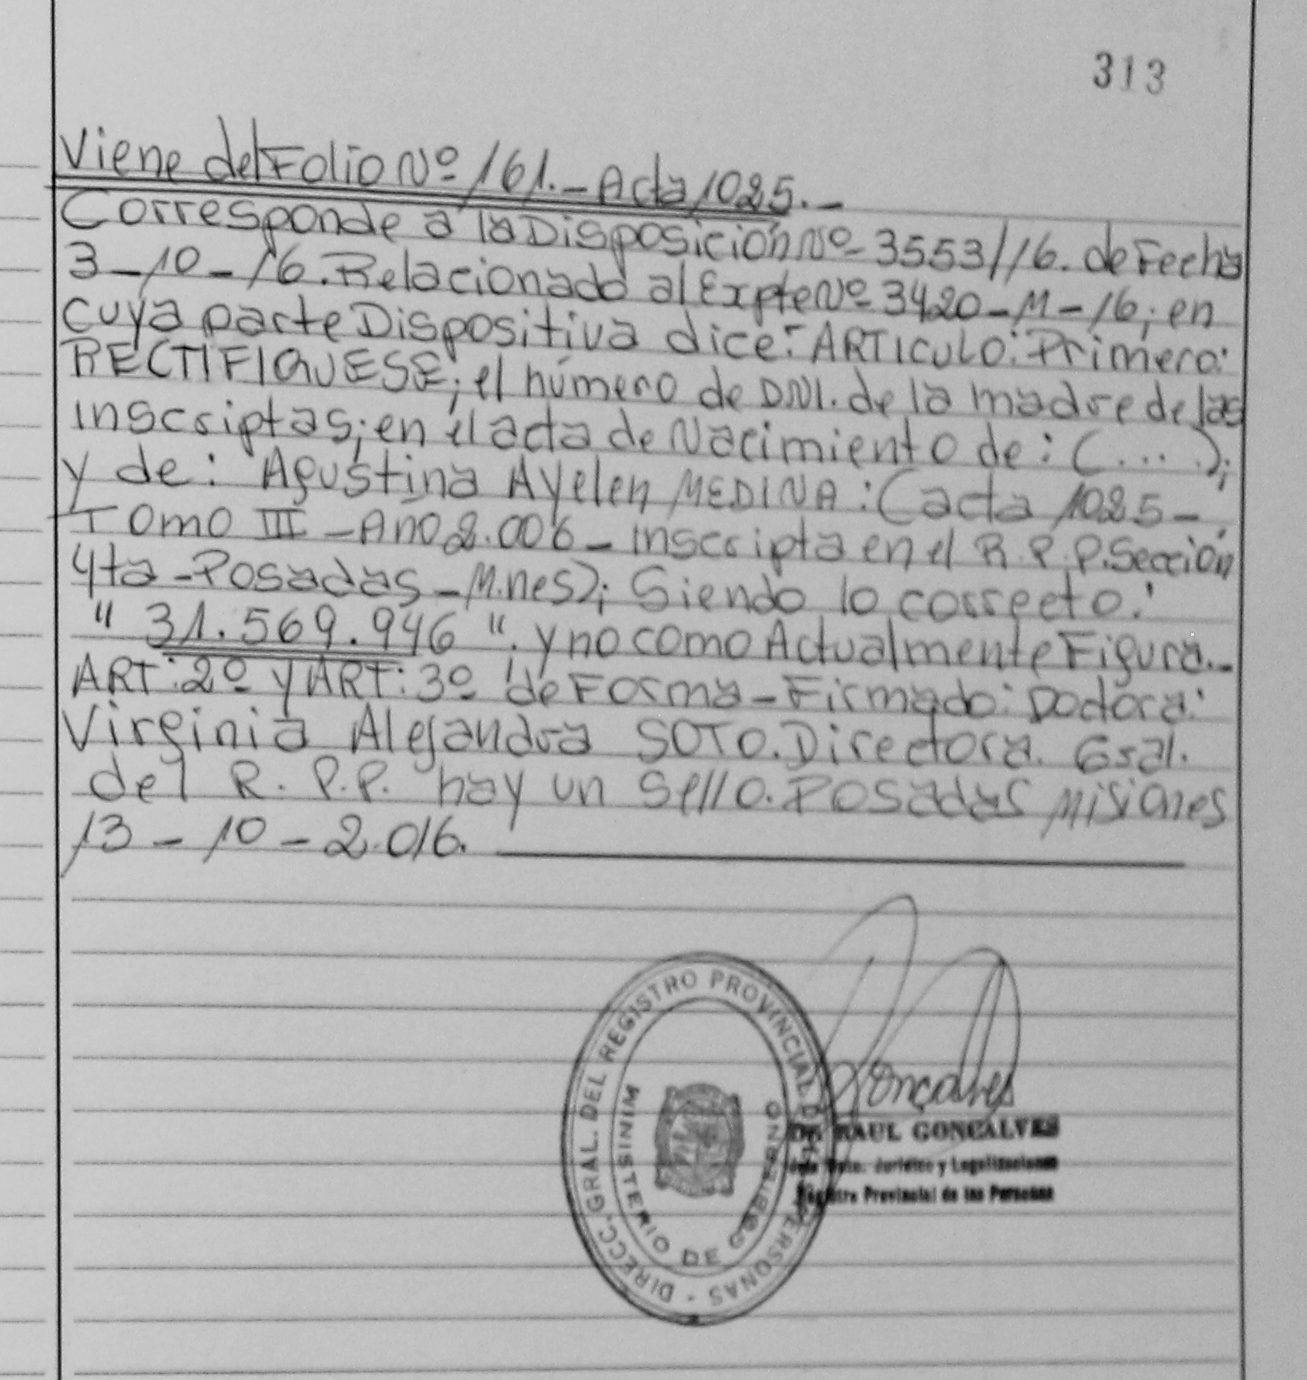 313
Viene del Folio Nº 161.- Acta 1025.-
Corresponde a la Disposición Nº 3553//16. de Fecha
3-10-16. Relacionado al Expte Nº 3420-M-16; en
cuya parte Dispositiva dice: ARTICULO: Primero:
RECTIFIQUESE; el número de DNI. de la madre de las
inscriptas; en el acta de Nacimiento de: (....);
y de: Agustina Ayelen MEDINA: (acta 1025-
Tomo III - Año 2.006 - inscripta en el R.P.P. Sección
4ta - Posadas - M.nes); Siendo lo correcto:
" 31.569.946 ". y no como Actualmente Figura.-
ART: 2º y ART: 3º de Forma - Firmado: Doctora:
Virginia Alejandra SOTO. Directora. Gral.
del R. P.P. hay un sello. Posadas Misiones
13-10-2.016.
DIRECC. GRAL. DEL REGISTRO PROVINCIAL DE PERSONAS -
MINISTERIO DE GOBIERNO
Goncalves
DR RAUL GONCALVES
Jurídico y Legalizaciones
Registro Provincial de las Personas